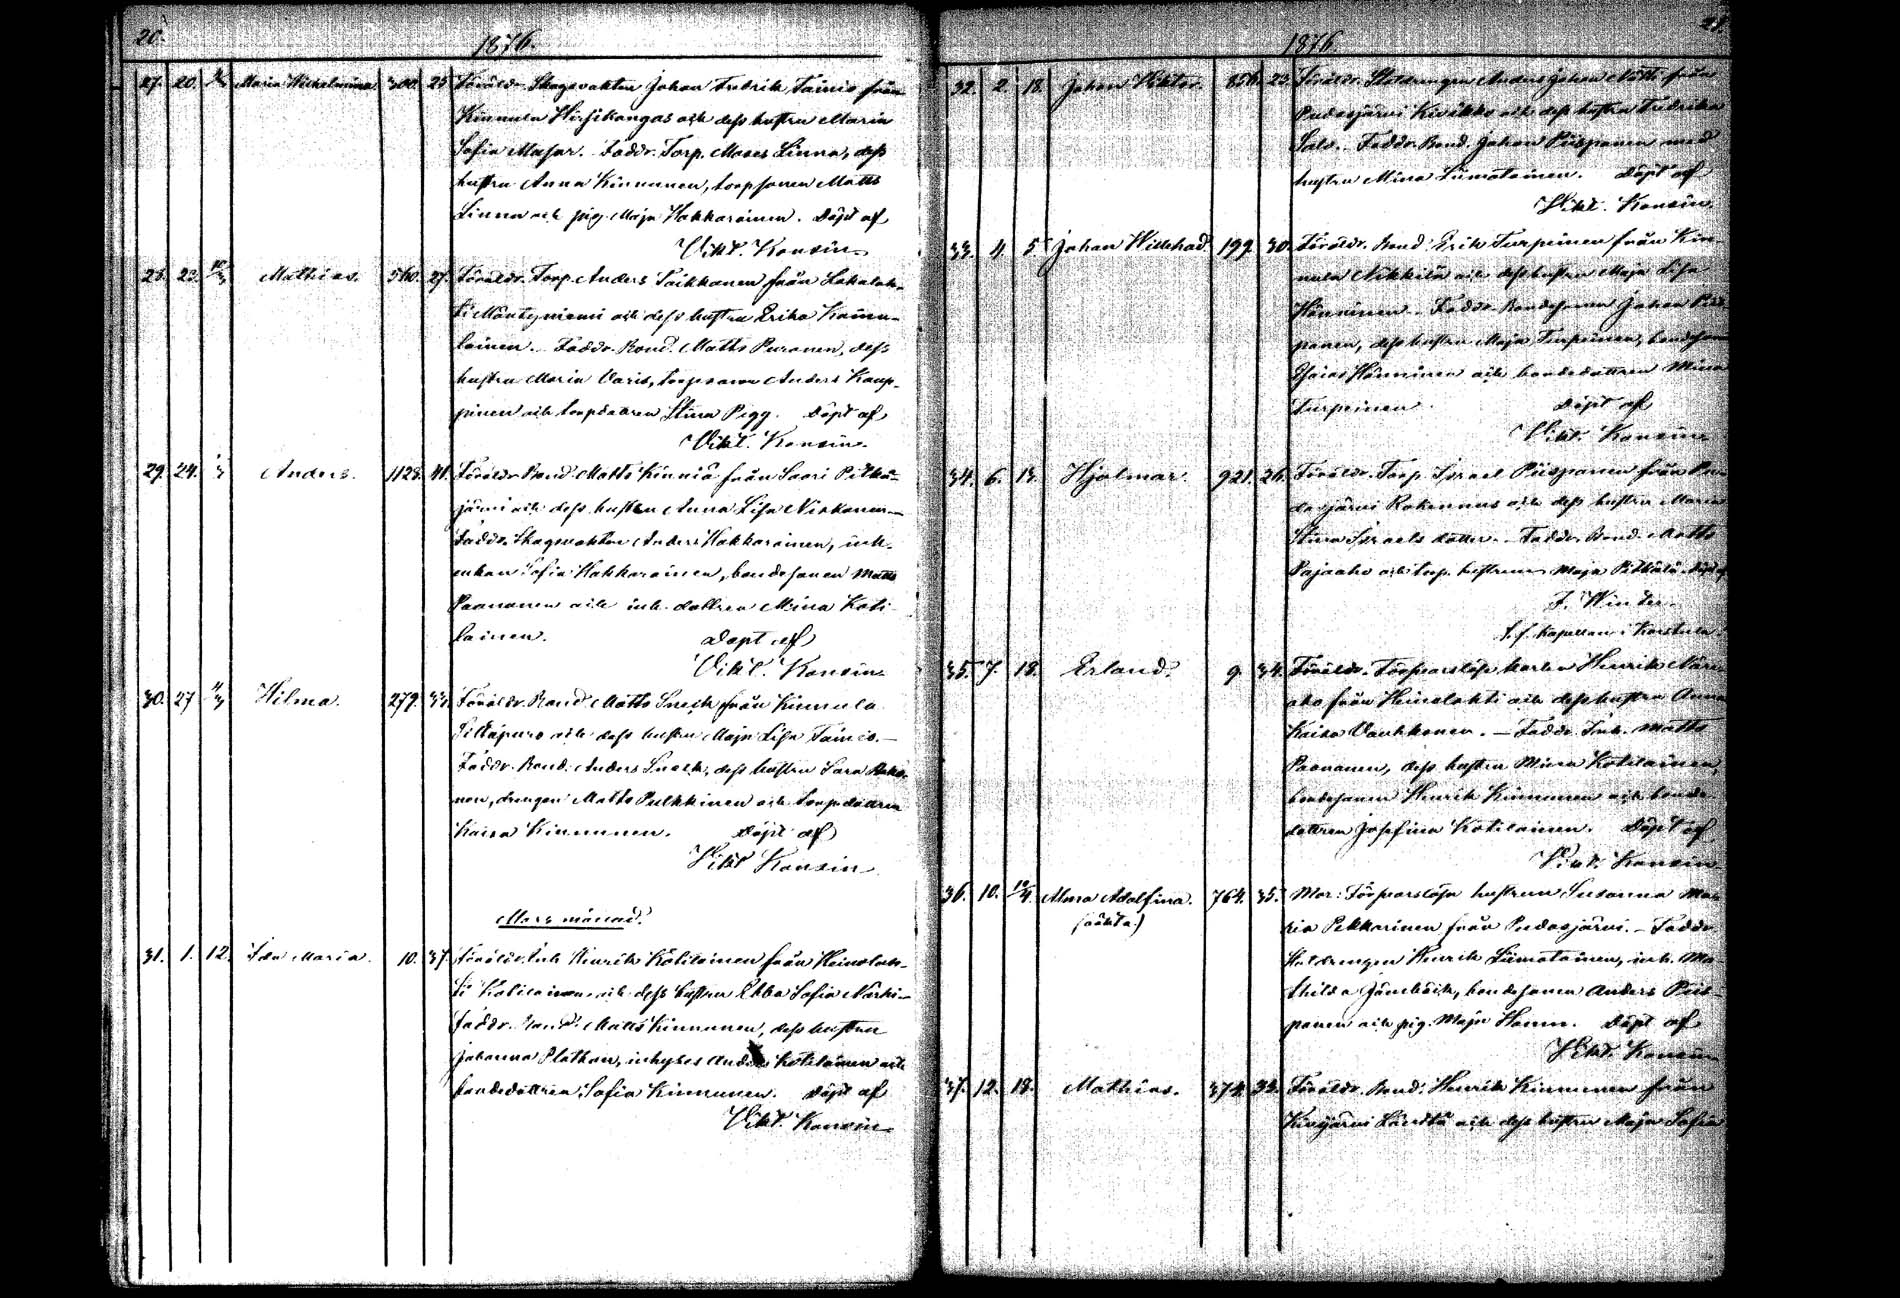 20.
1876.
27. 20. Maria Wilhelmina. 300. 25. Föräldr. Skogsvakten Johan Fredrik Tainio från
Kinnula Hirsikangas och dess hustru Maria
Sofia Majar. Faddr. Torp. Moses Linna, dess
hustru Anna Kinnunen, torpsonen Matts
Linna och pig. Maja Hakkarainen. Döpt af
Vikt. Konsin.
28. 23. Mathias. 560. 27. Föräldr. Torp. Anders Saikkonen från
Mäntyniemi och dess hustru Erika Kainu-
lainen. Faddr. Bond. Matts Puranen, dess
hustru Maria Varis, torpsonen Anders Kaup-
pinen och torpdottren Stina Pigg. Döpt af
Vikt. Konsin.
29. 24. Anders. 1128. 41. Föräldr. Bond. Matts Kinniä från Saari Pitkä-
järvi och dess hustru Anna Lisa Niskanen.
Faddr. Skogsvakten Anders Hakkarainen, inh.
enkan Sofia Hakkarainen, bondesonen Matts
Paananen och inh. dottren Mina Koti-
lainen. Döpt af
Vikt. Konsin.
30. 27. Hilma. 279. 33. Föräldr. Bond. Matts Snech från Kinnula
och dess hustru Maja Lisa Tainio.
Faddr. Bond. Anders Snech, dess hustru Sara
nen, drengen Matts Pulkkinen och torpdottren
Kaisa Kinnunen. Döpt af
Vikt Konsin
Mars månad.
31. 1. 12. Ida Maria. 10. 37. Föräldr. Inh Henrik Kotilainen från Heinolah-
ti Kotilainen och dess hustru Ebba Sofia Närhi
Faddr. Bond. Matts Kinnunen, dess hustru
Johanna Plathan, inhyses Anders Kotilainen och
bondedottren Sofia Kinnunen. Döpt af
Vikt. Konsin
1876
32. 2. 18. Johan Viktor. 856. 23. Föräldr. Statdrengen Anders Johan från
Pudasjärvi Kivikko och dess hustru Fredrika
Salo. Faddr. Bond. Johan Piispanen med
hustru Mina Liimatainen. Döpt af
Vikt. Konsin
33. 4. 5 Johan Willehad. 199. 30. Föräldr. Bond. Erik Turpeinen från Kin-
nula Nikkilä och dess hustru Maja Lisa
Hänninen. Faddr. Bondesonen Johan Piis-
panen, dess hustru Maja Turpeinen, bondeson
Esaias Hänninen och bondedottren Mina
Turpeinen. Döpt af
Vikt. Konsin
34. 6. 13. Hjalmar. 921. 26. Föräldr. Torp. Israel Piispanen från Pu-
dasjärvi Rakennus och dess hustru Maria
Stina Israels dotter. Faddr. Bond. Matts
Pajaaho och torp. hustrun Maja Pitkälä. Döpt af
F. Winter.
t. f. Kapellan i Karstula.
35. 7. 18. Erland. 9. 34. Föräldr. Torparlöse karlen Henrik
aho från Heinolahti och dess hustru Anna
Kaisa Vankkonen. – Faddr. Inh. Matts
Paananen, dess hustru Mina Kotilainen,
bondesonen Henrik Kinnunen och bonde-
dottren Josefina Kotilainen. Döpt af
Vikt. Konsin
36. 10. Alma Adolfina. 764. 35. Mor: Försvarslösa hustrun Susanna Ma-
(oäkta.) ria Pekkarinen från Pudasjärvi. – Faddr.
Statdrengen Henrik Liimatainen, inh. Ma-
thilda, bondesonen Anders Piis-
panen och pig. Maja Hanin. Döpt af
Vikt. Konsin
37. 12. 18. Mathias. 374. 33. Föräldr. Bond. Henrik Kinnunen från
Kivijärvi och dess hustru Maja Sofia